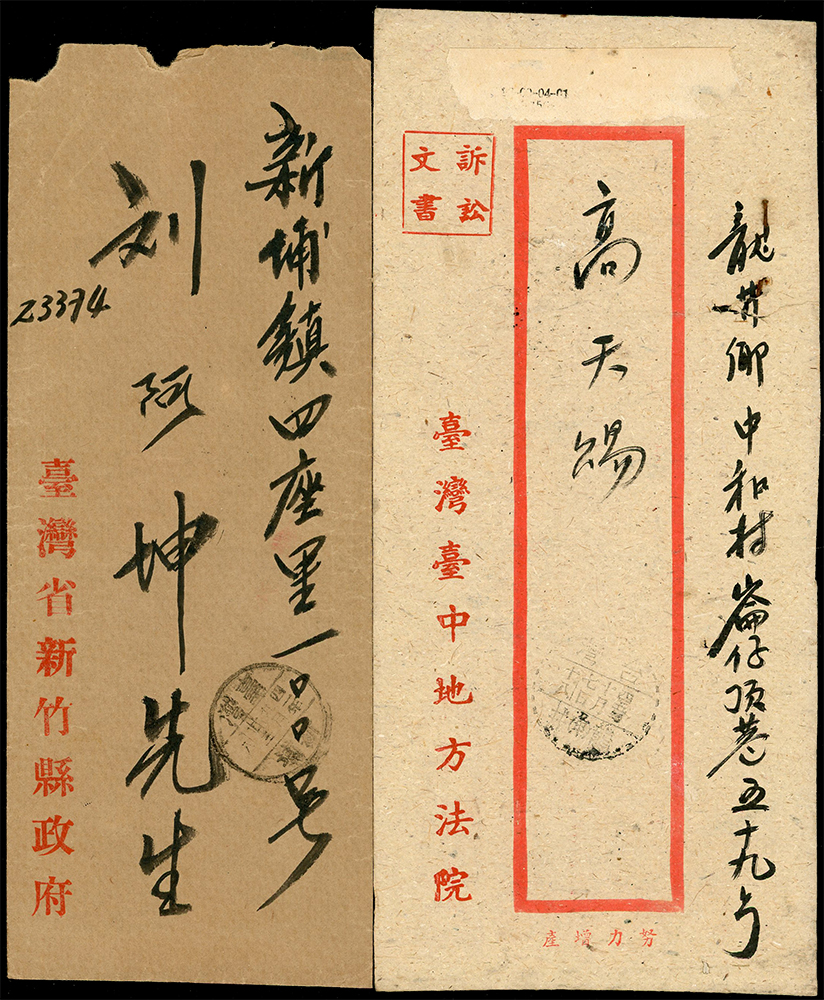 新埔鎮四座里一〇〇号
刘阿坤先生
23394
臺灣省新竹縣政府
龍井鄉中和村崙仔頂巷五十九号
高天賜
訴訟
文書
臺灣臺中地方法院
努力增產